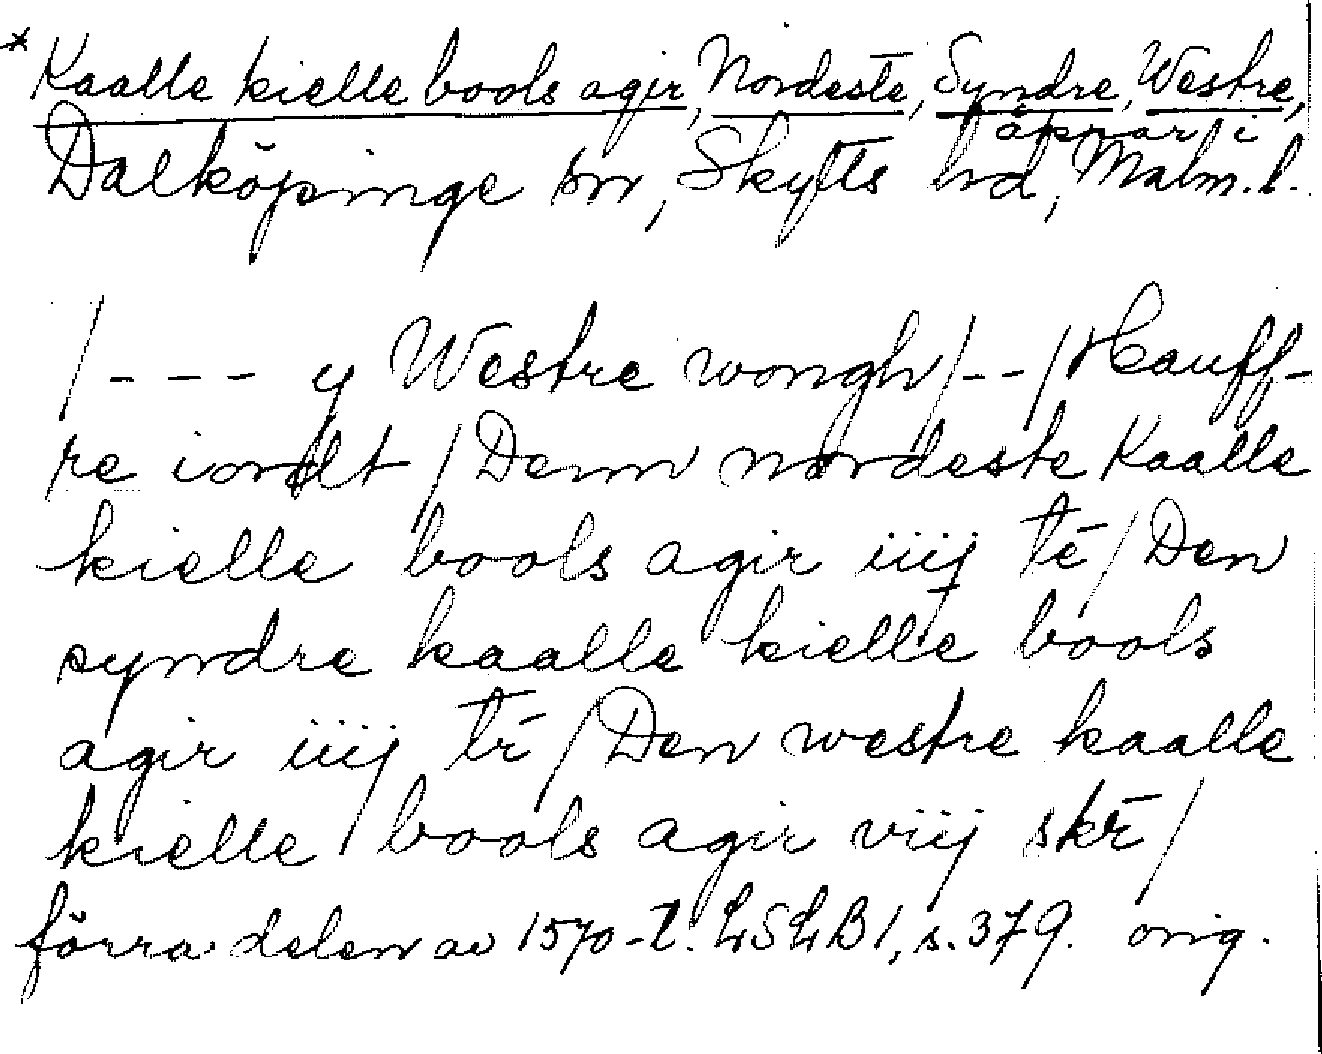 * Kaalle kielle bools agir, Nordeste, Syndre, Westre,
åkrar i
Dalköpinge sn, Skytts hd, Malm. l.
/ - - - y Westre wongh / - - / Hauff-
re iordt / Denn nordeste Kaalle
kielle bools agir iiij tr̄ / Den
syndre kaalle kielle bools
agir iiij tr̄ / Den westre kaalle
kielle bools agir viij skr̄ /
förra delen av 1570-t. LSLB 1, s. 379. orig.